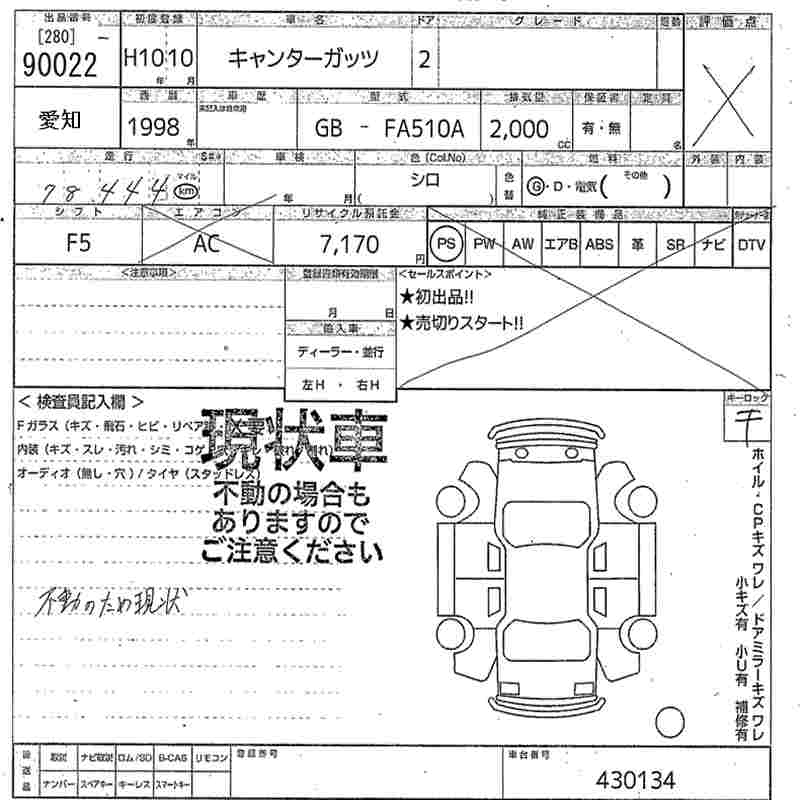 出品番号 初度登録 車名 ドア グレード 評価点
[280] 90022 H10 年 10 月 キャンターガッツ 2
愛知 西暦 車歴 型式 排気量 保証書 定員
1998 年 GB - FA510A 2,000 CC 有・無 名
走行 車検 色(Col.No) 燃料 外装 内装
78,444 マイル km 年 月 シロ ( ) 色替 G・D・電気 (その他 )
シフト エアコン リサイクル預託金 純正装備品
F5 AC 7,170 円 PS PW AW エアB ABS 革 SR ナビ DTV
<注意事項> 登録書類有効期限 <セールスポイント>
月 日 ★初出品!!
輸入車 ★売切りスタート!!
ディーラー・並行
左H ・ 右H
< 検査員記入欄 > キーロック
Fガラス(キズ・飛石・ヒビ・リペア 要
内装(キズ・スレ・汚れ・シミ・コゲ
オーディオ(無し・穴)/タイヤ(スタッドレス)
現状車
不動の場合も
ありますので
ご注意ください
不動のため現状
ホイル・CPキズ ワレ/ドアミラーキズ ワレ
小キズ有 小U有 補修有
後送品 取説 ナビ取説 ロム/SD B-CAS リモコン 登録番号 車台番号
ナンバー スペアキー キーレス スマートキー 430134